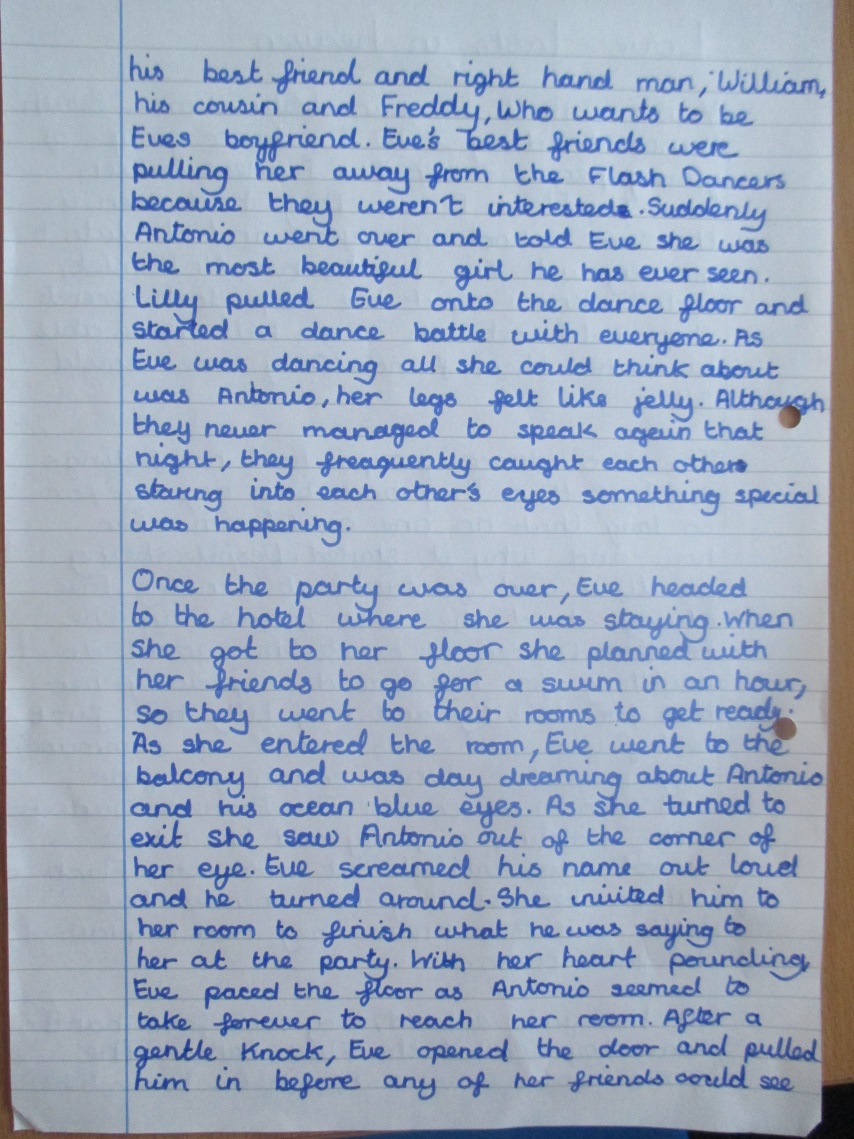 his best friend and right hand man, William,
his cousin and Freddy, Who wants to be
Eves boyfriend. Eve's best friends were
pulling her away from the Flash Dancers
because they weren't interested. Suddenly
Antonio went over and told Eve she was
the most beautiful girl he has ever seen.
Lilly pulled Eve onto the dance floor and
started a dance battle with everyone. As
Eve was dancing all she could think about
was Antonio, her legs felt like jelly. Although
they never managed to speak agein that
night, they freaquently caught each other
staring into each other's eyes something special
was happening.
Once the party was over, Eve headed
to the hotel where she was staying. When
she got to her floor she planned with
her friends to go for a swim in an hour,
so they went to their rooms to get ready.
As she entered the room, Eve went to the
balcony and was day dreaming about Antonio
and his ocean blue eyes. As she turned to
exit she saw Antonio out of the corner of
her eye. Eve screamed his name out loud
and he turned around. She invited him to
her room to finish what he was saying to
her at the party. With her heart pounding,
Eve paced the floor as Antonio seemed to
take forever to reach her room. After a
gentle Knock, Eve opened the door and pulled
him in before any of her friends could see